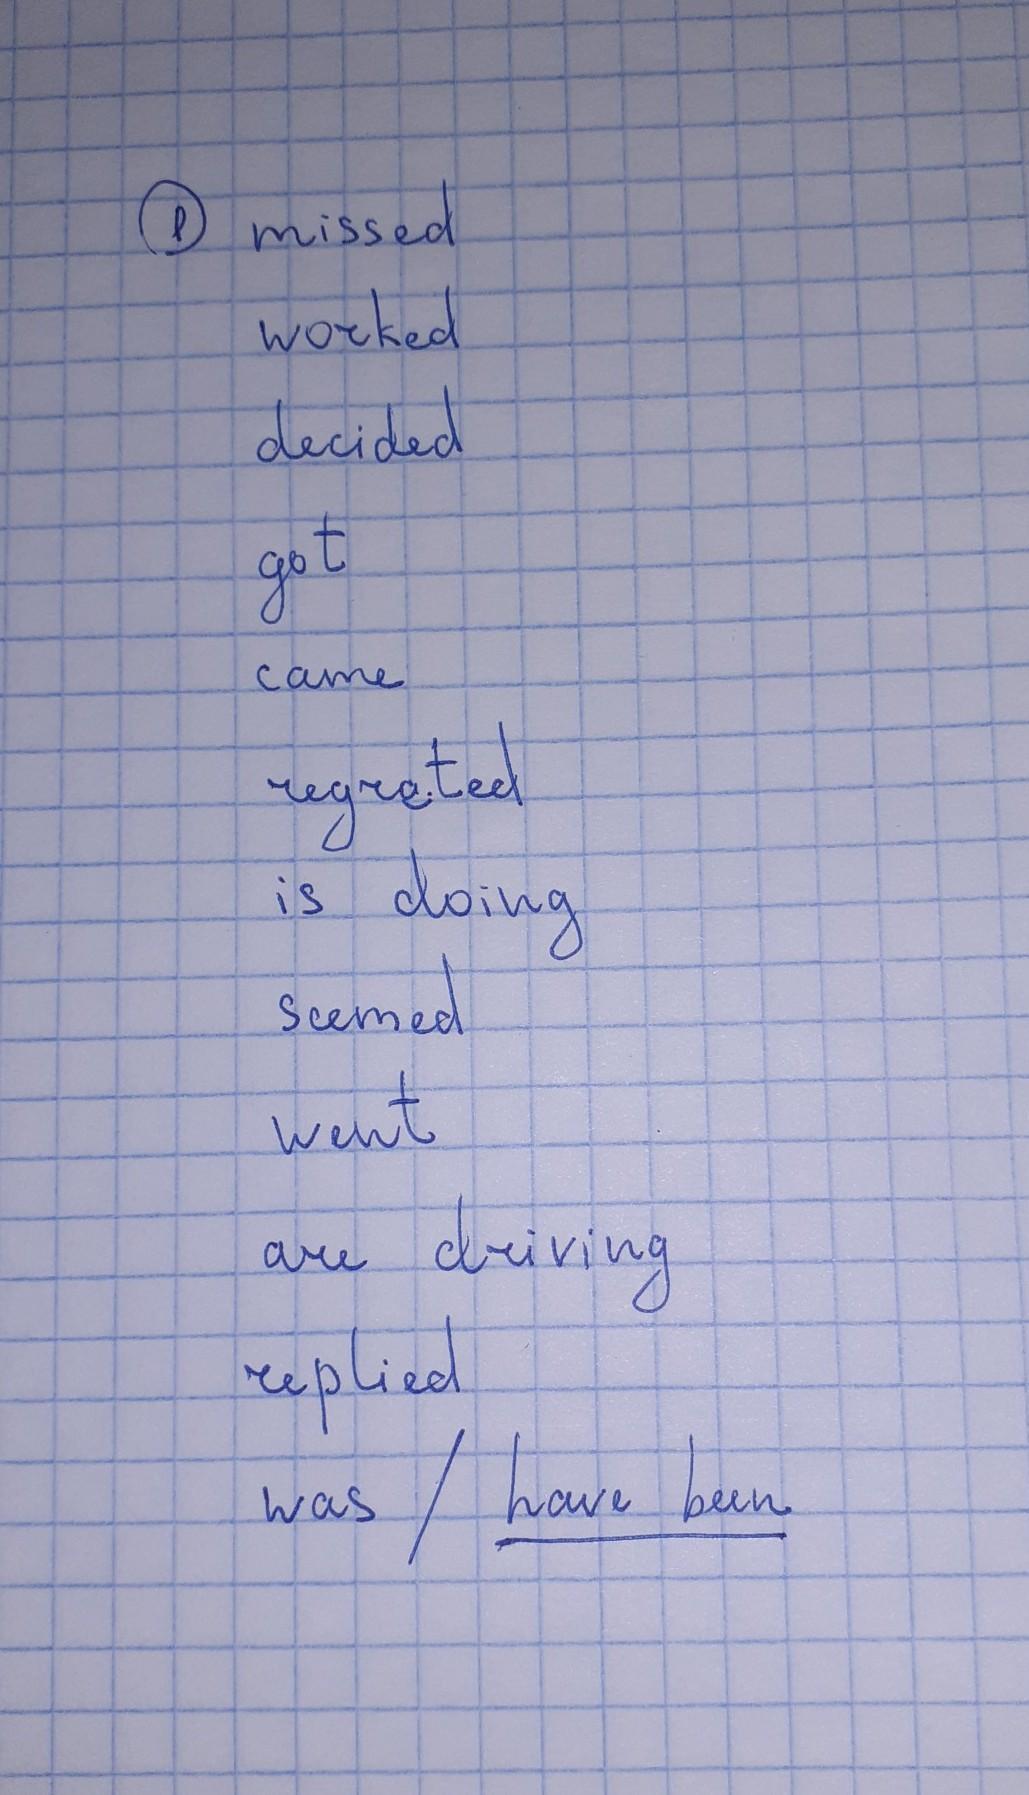 ① missed
worked
decided
got
came
regreted
is doing
seemed
went
are driving
replied
was / have been